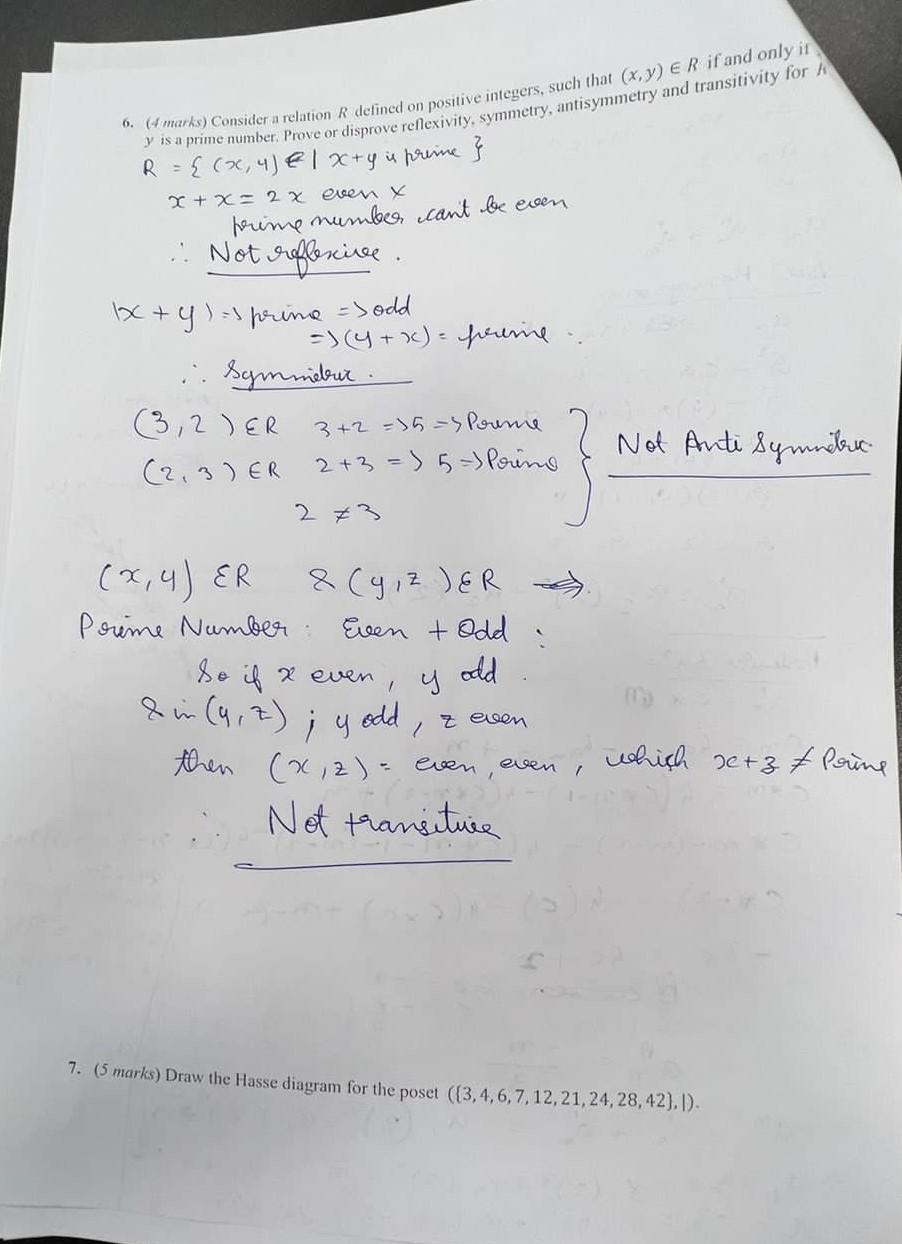 6. (4 marks) Consider a relation R defined on positive integers, such that (x, y) ∈ R if and only if
y is a prime number. Prove or disprove reflexivity, symmetry, antisymmetry and transitivity for
R = { (x, y) | x+y is prime }
x + x = 2x even x
prime number can't be even
∴ Not reflexive.
(x + y) => prime => odd
=> (y + x) = prime.
∴ Symmetric.
(3, 2) ∈R 3+2 => 5 => Prime
(2, 3) ∈R 2+3 => 5 => Prime
Not Anti Symmetric
2 ≠ 3
(x, y) ∈R & (y, z) ∈R =>
Prime Number : Even + Odd :
So if x even, y odd.
& in (y, z) ; y odd, z even
then (x, z) = even, even, which x+z ≠ Prime
∴ Not transitive
7. (5 marks) Draw the Hasse diagram for the poset ({3, 4, 6, 7, 12, 21, 24, 28, 42}, |).